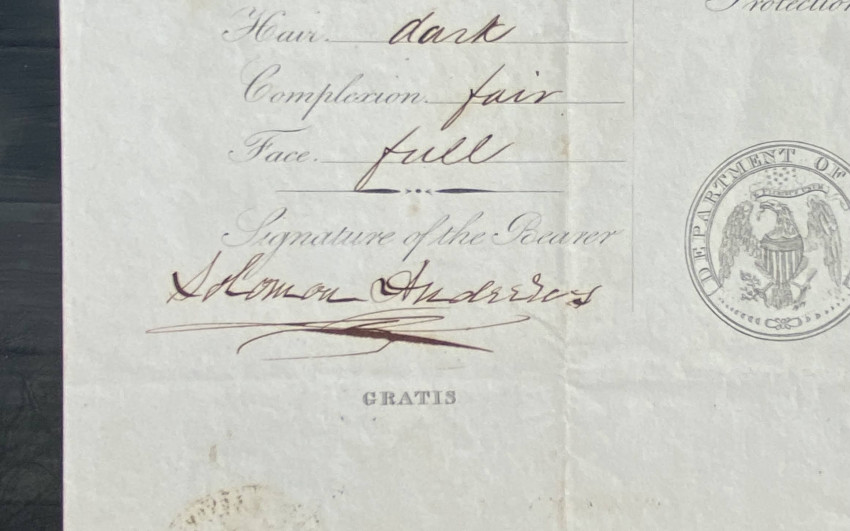 Protection
Hair. dark
Complexion. fair
Face. full
Signature of the Bearer
Solomon Andrews
DEPARTMENT OF
GRATIS